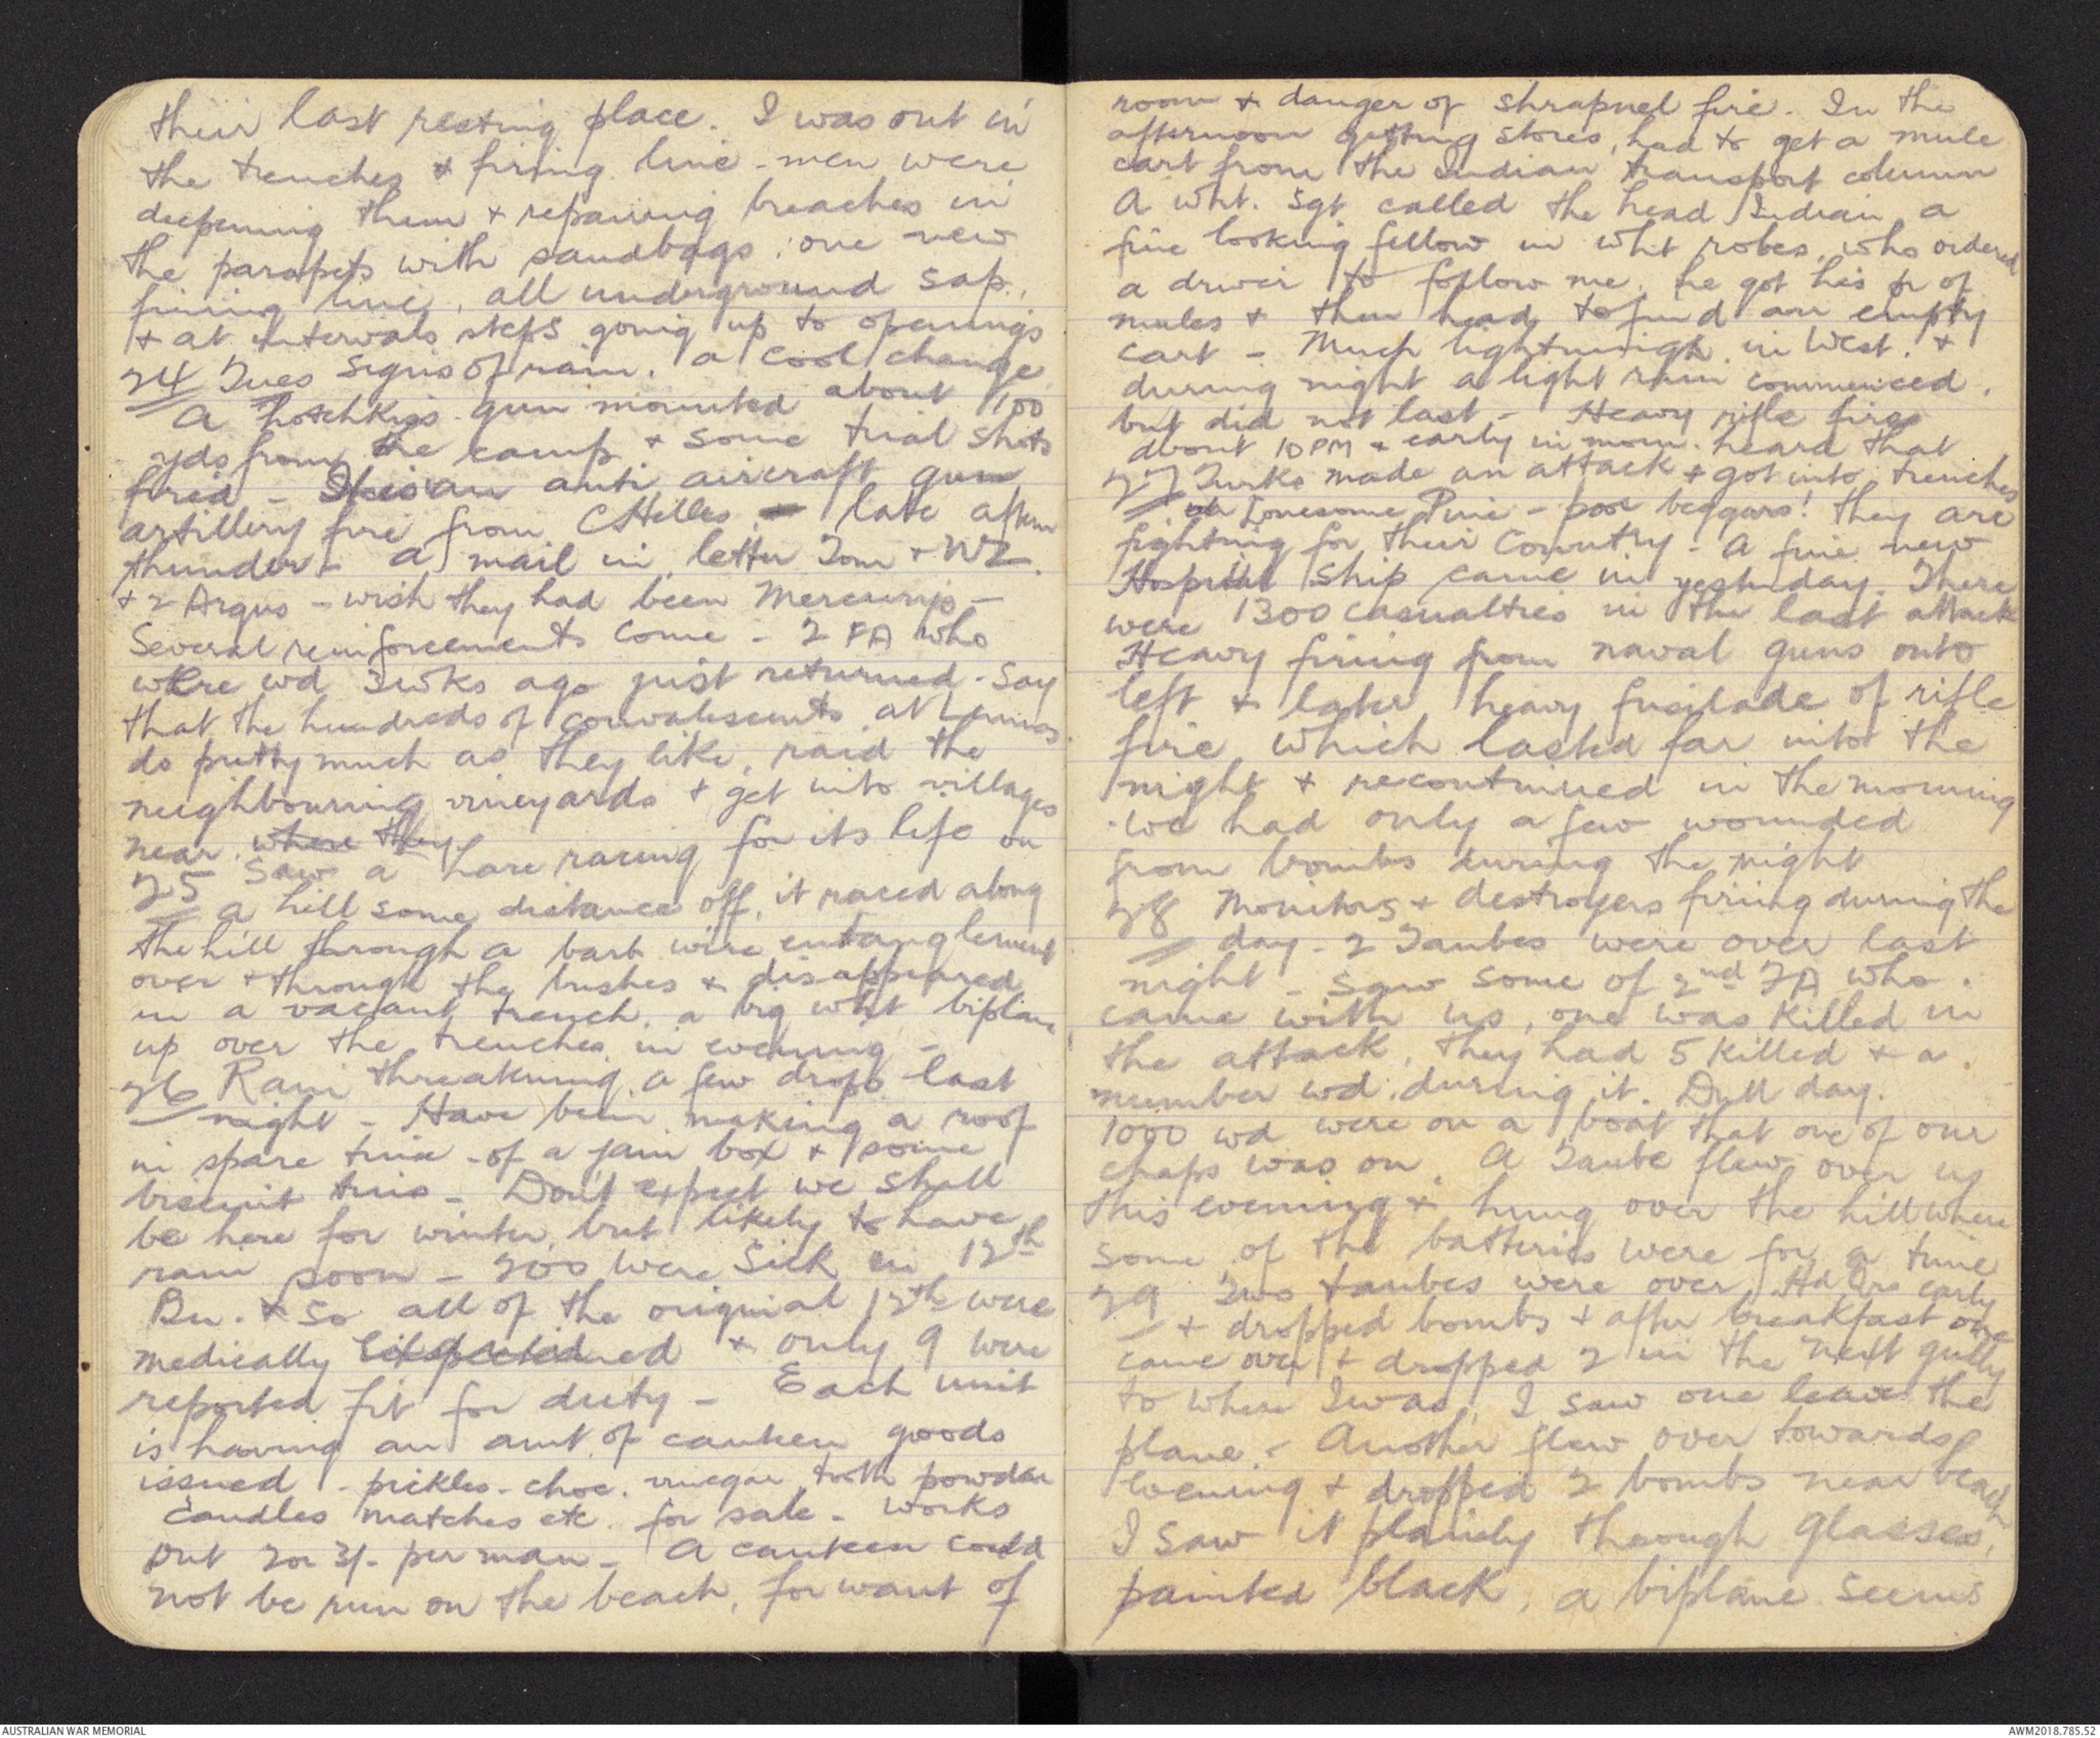 their last resting place. I was out in
the trenches & firing line - men were
deepening them & repairing breaches in
the parapets with sandbags, one new
firing line, all underground sap,
& at intervals steps going up to openings
24 Tues Signs of rain. a cool change
A hotchkiss gun mounted about 100
yds from the camp & some trial shots
fired - an anti aircraft gun
artillery fire from C Helles - late aftern
thunder - a mail in, letter Tom & WZ.
& 2 Argus - wish they had been Mercurys -
Several reinforcements come - 2 FA who
were wd 3 wks ago just returned. Say
that the hundreds of convalescents at Lemnos
do pretty much as they like, raid the
neighbouring vineyards & get into villages
near. where they
25 Saw a hare racing for its life on
a hill some distance off, it raced along
the hill through a barb wire entanglement
over & through the bushes & disappeared
in a vacant trench. a big wht biplane
up over the trenches in evening -
26 Rain threatening, a few drops last
night - Have been making a roof
in spare time - of a jam box & some
biscuit tins - Don't expect we shall
be here for winter, but likely to have
rain soon - 200 were sick in 12th
Bn. & so all of the original 12th were
medically & only 9 were
reported fit for duty - Each unit
is having an amt of canteen goods
issued - pickles - choc. vinegar tooth powder
candles matches etc. for sale - works
out 2 or 3/- per man - A canteen could
not be run on the beach, for want of
room & danger of shrapnel fire. In the
afternoon getting stores, had to get a mule
cart from the Indian transport column
A wht. Sgt called the head Indian, a
fine looking fellow in wht robes, who ordered
a driver to follow me. he got his pr of
mules & then had to find an empty
cart - Much lightning in West. &
during night a light rain commenced.
but did not last - Heavy rifle fire
about 10 PM & early in morn. heard that
27 Turks made an attack & got into trenches
at Lonesome Pine - poor beggars! they are
fighting for their Country - A fine new
Hospital ship came in yesterday. There
were 1300 casualties in the last attack
Heavy firing from naval guns onto
left & later heavy fusilade of rifle
fire which lasted far into the
night & recontinued in the morning
- we had only a few wounded
from bombs during the night
28 Monitors & destroyers firing during the
day - 2 Taubes were over last
night - saw some of 2nd FA who
came with us, one was killed in
the attack, they had 5 killed & a
number wd. during it. Dull day.
1000 wd were on a boat that one of our
chaps was on. A Taube flew over us
this evening & hung over the hill where
some of the batteries were for a time
29 Two taubes were over Hd Qrs early
& dropped bombs & after breakfast one
came over & dropped 2 in the next gully
to where I was, I saw one leave the
plane. - Another flew over towards
evening & dropped 2 bombs near beach
I saw it plainly through glasses,
painted black, a biplane seems
AUSTRALIAN WAR MEMORIAL
AWM2018.785.52